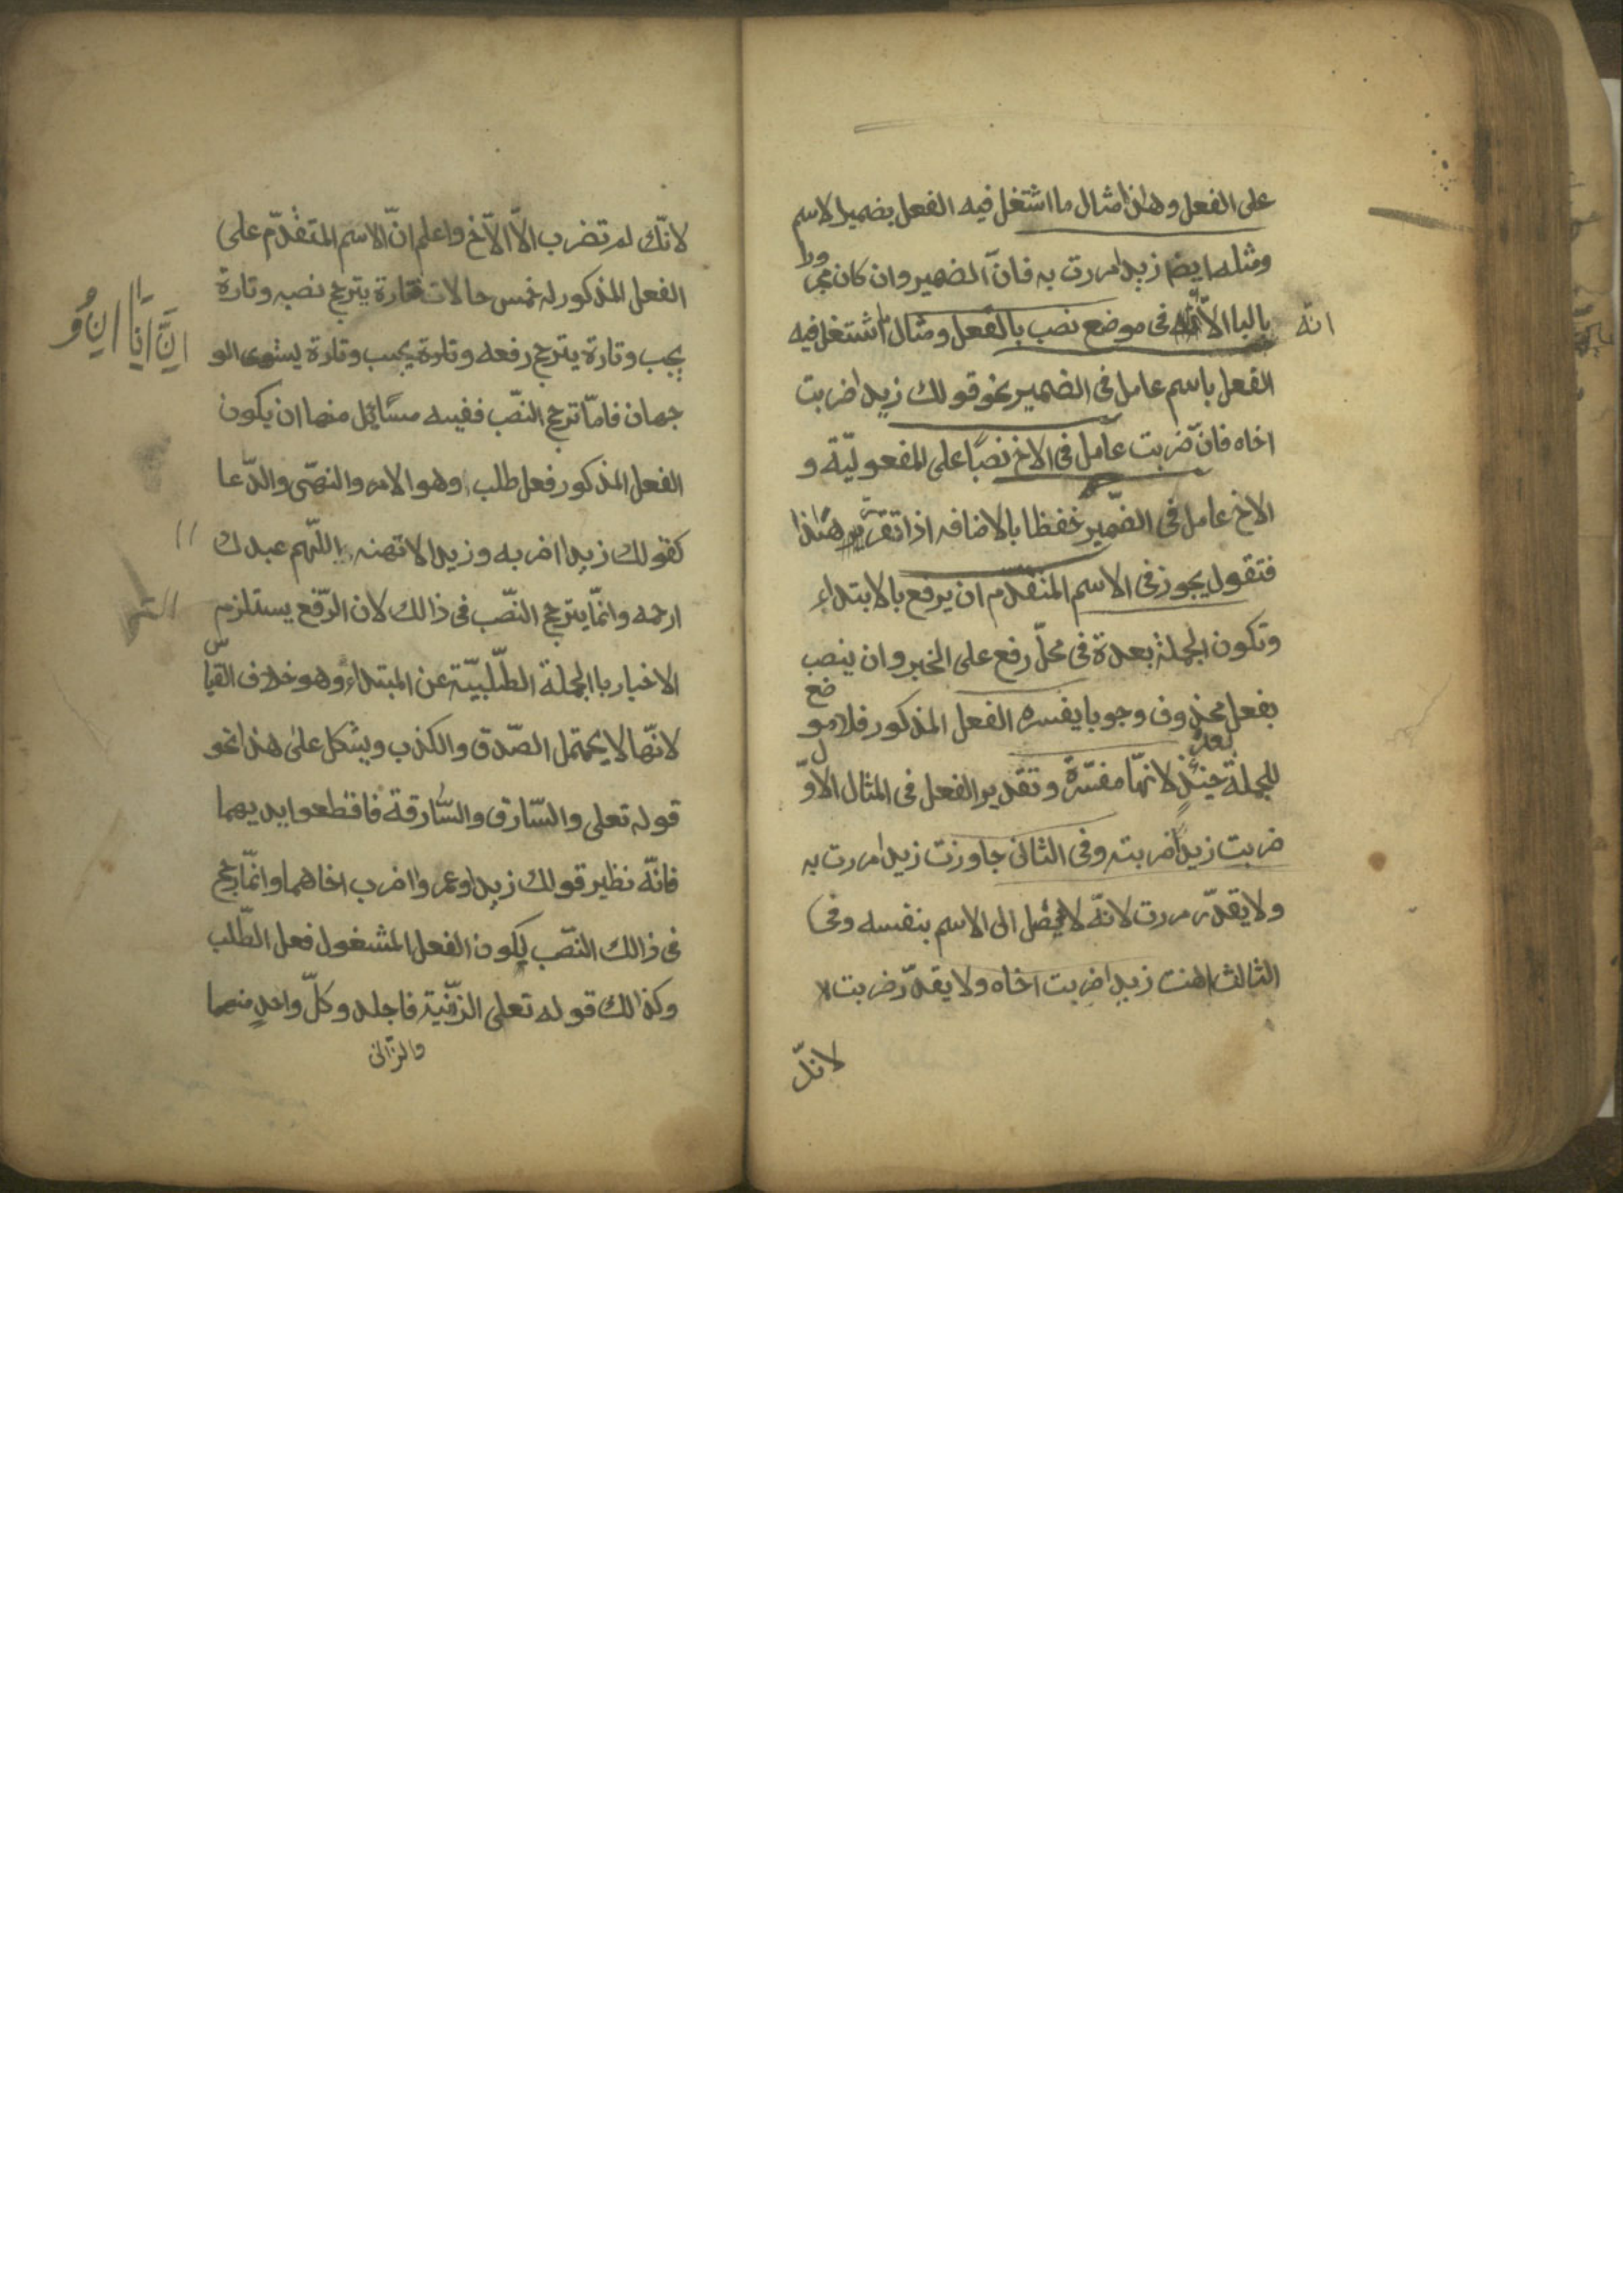 على الفعل وهاذا مثال ما اشتغل فيه الفعل بضمير الاسم
ومثله ايضا زيدا مررت به فانّ الضمير وان كان مجرورا
بالبا الاّ انّه فى موضع نصب بالفعل ومثال ما اشتغل فيه
انّه
الفعل باسم عامل فى الضمير نحو قولك زيدا ضربت
اخاه فانّ ضربت عامل فى الاخ نصبًا على المفعوليّة و
الاخ عامل فى الضّمير خفظا بالاضافه اذا تقرّر هٰذا
فتقول يجوز فى الاسم المتقدم ان يرفع بالابتداء
وتكون الجملة بعدة فى محلّ رفع على الخبر وان ينصب
بفعل محذوف وجوبا يفسره الفعل المذكور فلا موضع
للجملة حينئذٍ بعدُ لانهّا مفسّرةً وتقدير الفعل فى المثال الاوّل
ضربت زيداً ضربته وفى الثانى جاوزت زيدا مررت به
ولا يقدّر مررت لانّه لا يصل الى الاسم بنفسه وفى
الثالث اهنت زيدا ضربت اخاه ولا يقدّر ضربت لا
لانّك
لانّك لم تضرب الاّ الاّخ واعلم انّ الاسم المتقدّم على
الفعل المذكور له خمس حالات فتارة يترجح نصبه وتارة
يجب وتارة يترجح رفعه وتارة يجب وتارة يستوى الو
جهان فامّا ترجح النصّب ففيه مسائل منها ان يكون
الفعل المذكور فعل طلب وهو الامر والنهّى والدّعا
كقولك زيدا اضربه وزيدا لا تهنه اللّهم عبدك
ارحمه وانمّا يترجح النصّب فى ذالك لان الرّفع يستلزم
الاخبار باالجملة الطّلبيّة عن المبتداء وهو خلاف القياس
لانّها لا يحتمل الصّدق والكذب ويشكل علىٰ هذا نحو
قوله تعلى والسّارق والسّارقة فاقطعوا يديهما
فانّه نظير قولك زيدا وعمروا اضرب اخاهما وانمّا رجح
فى ذالك النصّب لكون الفعل المشغول فعل الطّلب
وكذالك قوله تعلى الزّنية فاجلد وكلّ واحدٍ منهما
والزّانى